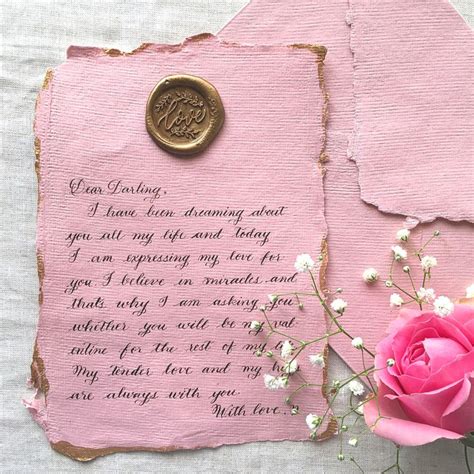 love
Dear Darling,
I have been dreaming about
you all my life and today
I am expressing my love for
you I believe in miracles and
thats why I am asking you
whether you will be my val
entine for the rest of my
My Tender love and my
are always with you
With love